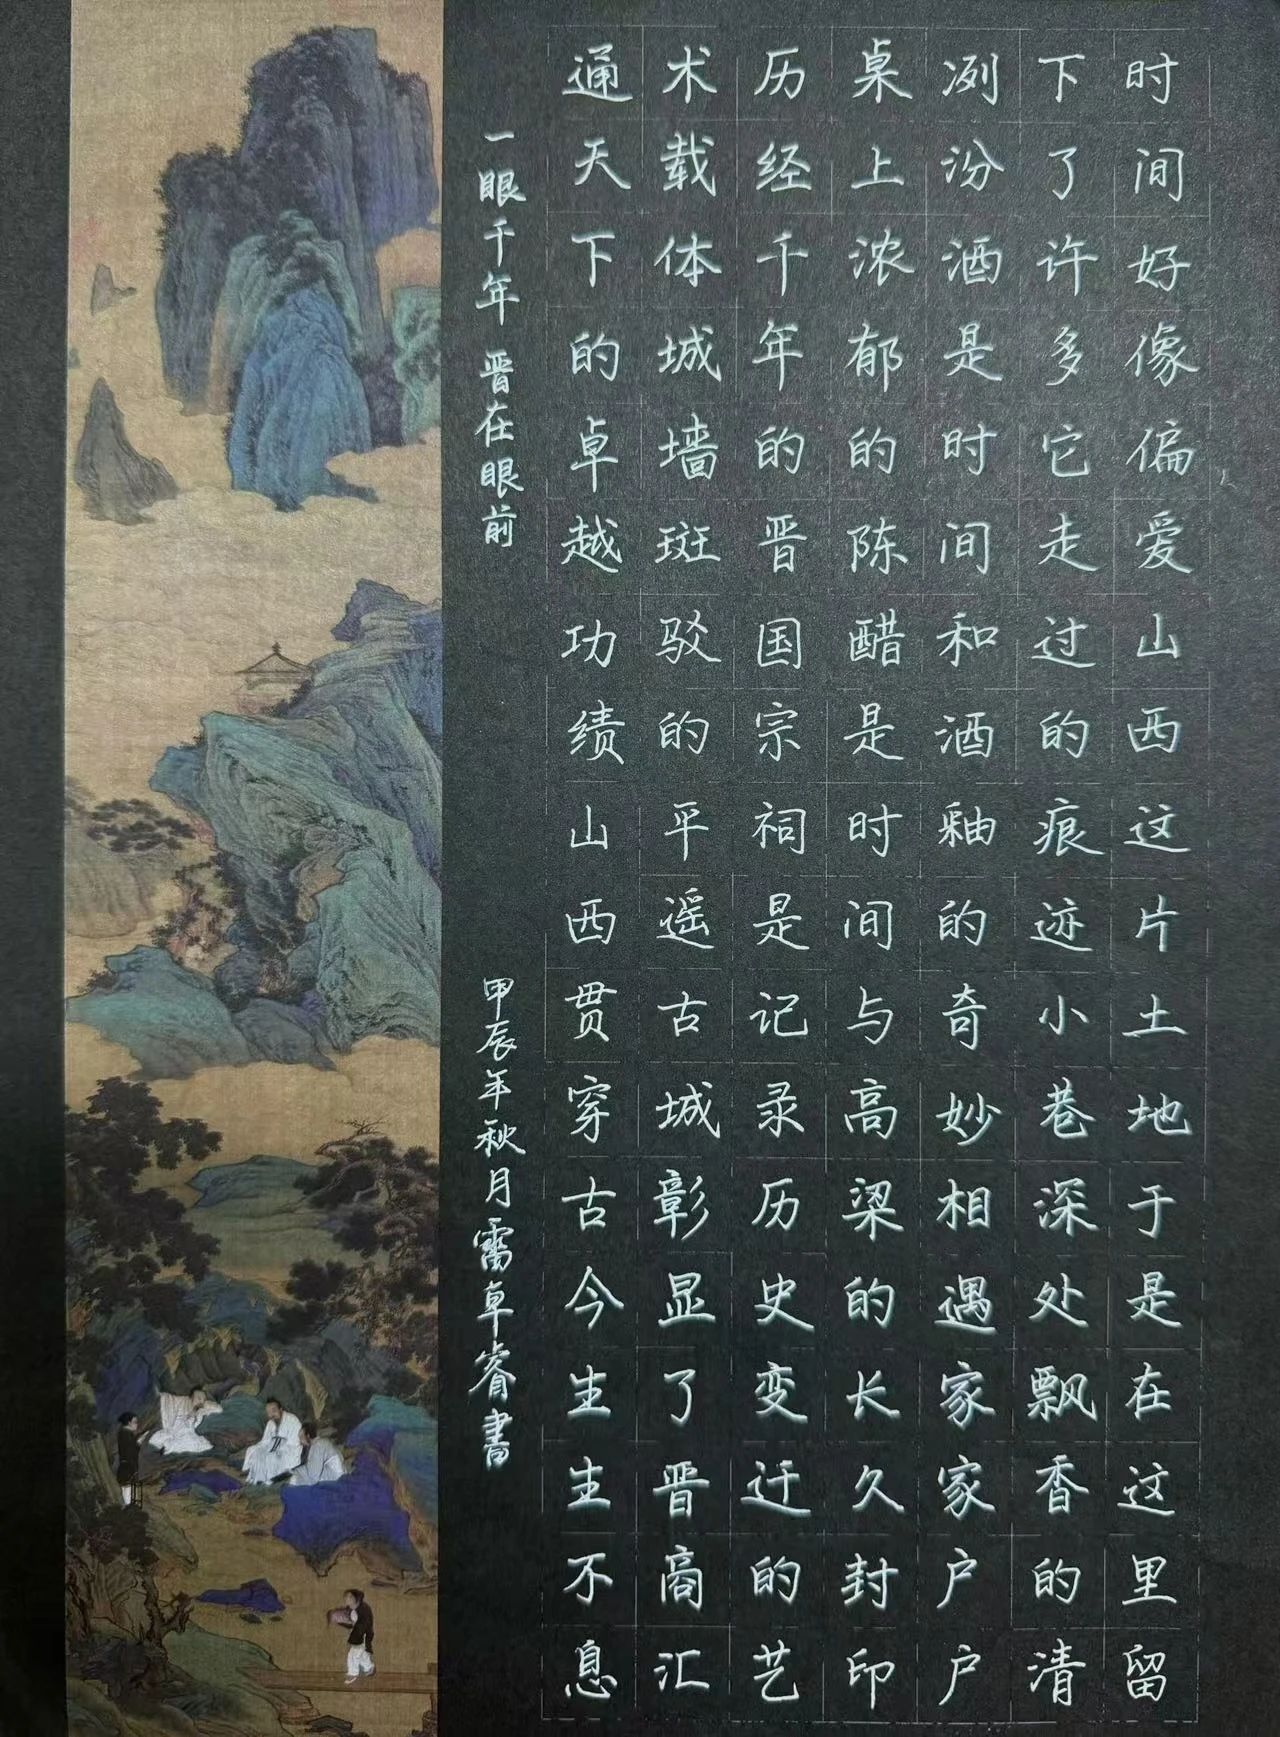 时间好像偏爱山西这片土地于是在这里留
下了许多它走过的痕迹小巷深处飘香的清
冽汾酒是时间和酒釉的奇妙相遇家家户户
桌上浓郁的陈醋是时间与高梁的长久封印
历经千年的晋国宗祠是记录历史变迁的艺
术载体城墙斑驳的平遥古城彰显了晋商汇
通天下的卓越功绩山西贯穿古今生生不息
一眼千年 晋在眼前
甲辰年秋月雷卓睿書